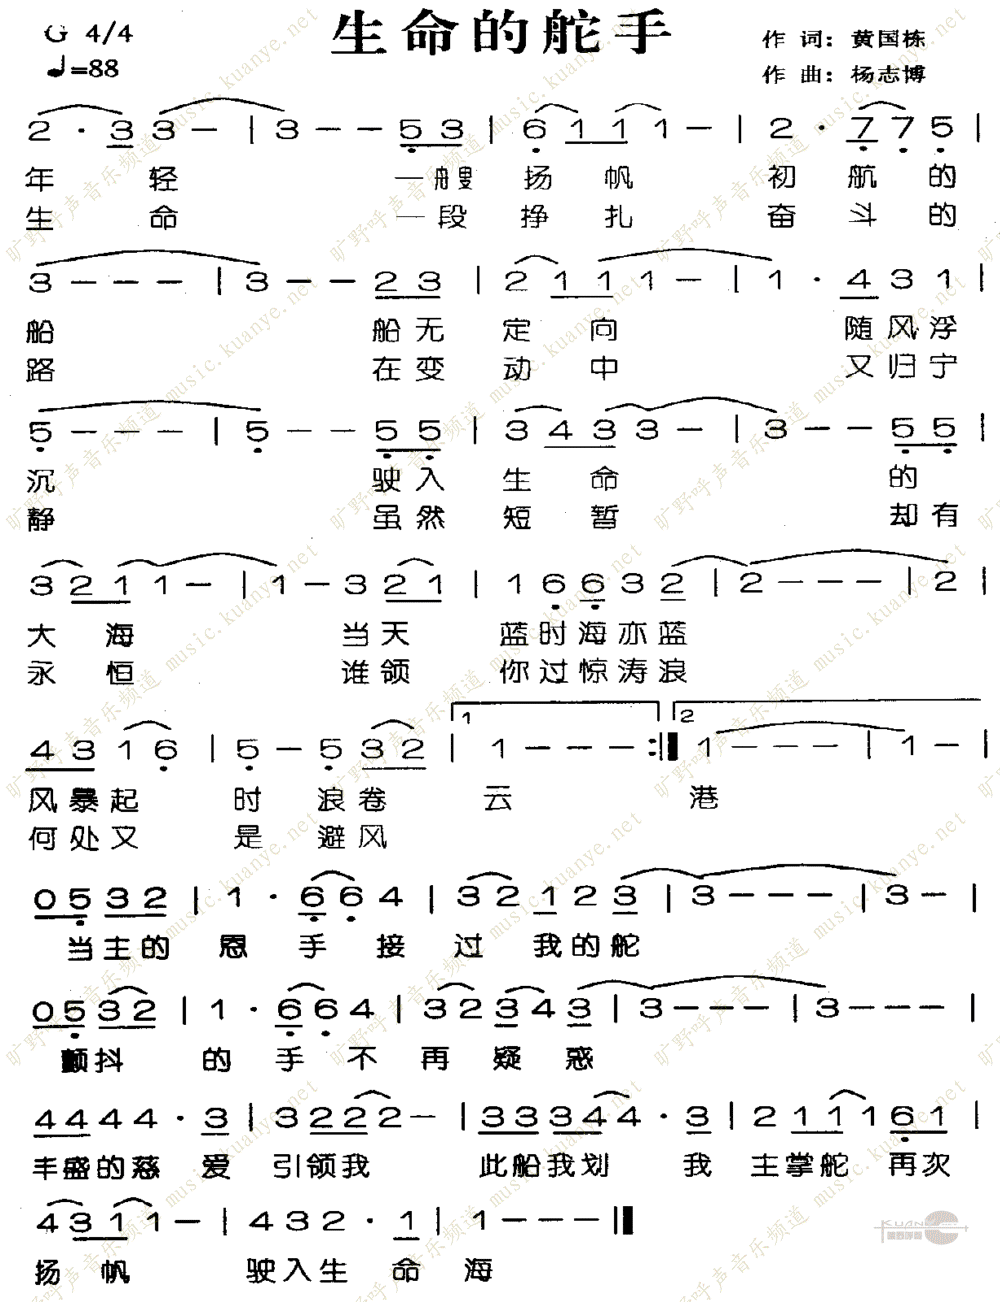 生命的舵手
G 4/4
♩=88
作 词：黄国栋
作 曲：杨志博
2 · 3 3 - | 3 - - 5 3 | 6 1 1 1 - | 2 · 7 7 5 |
年 轻 一艘 扬 帆 初 航 的
生 命 一段 挣 扎 奋 斗 的
3 - - - | 3 - - 2 3 | 2 1 1 1 - | 1 · 4 3 1 |
船 船无 定 向 随风浮
路 在变 动 中 又归宁
5 - - - | 5 - - 5 5 | 3 4 3 3 - | 3 - - 5 5 |
沉 驶入 生 命 的
静 虽然 短 暂 却有
3 2 1 1 - | 1 - 3 2 1 | 1 6 6 3 2 | 2 - - - | 2 |
大 海 当天 蓝时海亦蓝
永 恒 谁领 你过惊涛浪
4 3 1 6 | 5 - 5 3 2 | 1 1 - - - :| 2 1 - - - | 1 -
风暴起 时 浪卷 云 港
何处又 是 避风
0 5 3 2 | 1 · 6 6 4 | 3 2 1 2 3 | 3 - - - | 3 - |
当主的 恩 手 接 过 我的舵
0 5 3 2 | 1 · 6 6 4 | 3 2 3 4 3 | 3 - - - | 3 - - - |
颤抖 的 手 不 再 疑 惑
4 4 4 4 · 3 | 3 2 2 2 - | 3 3 3 4 4 · 3 | 2 1 1 1 6 1 |
丰盛的慈 爱 引领我 此船我划 我 主掌舵 再次
4 3 1 1 - | 4 3 2 · 1 | 1 - - - |
扬 帆 驶入生 命 海
旷野呼声音乐频道 music.kuanye.net
KUANYE
旷野呼声